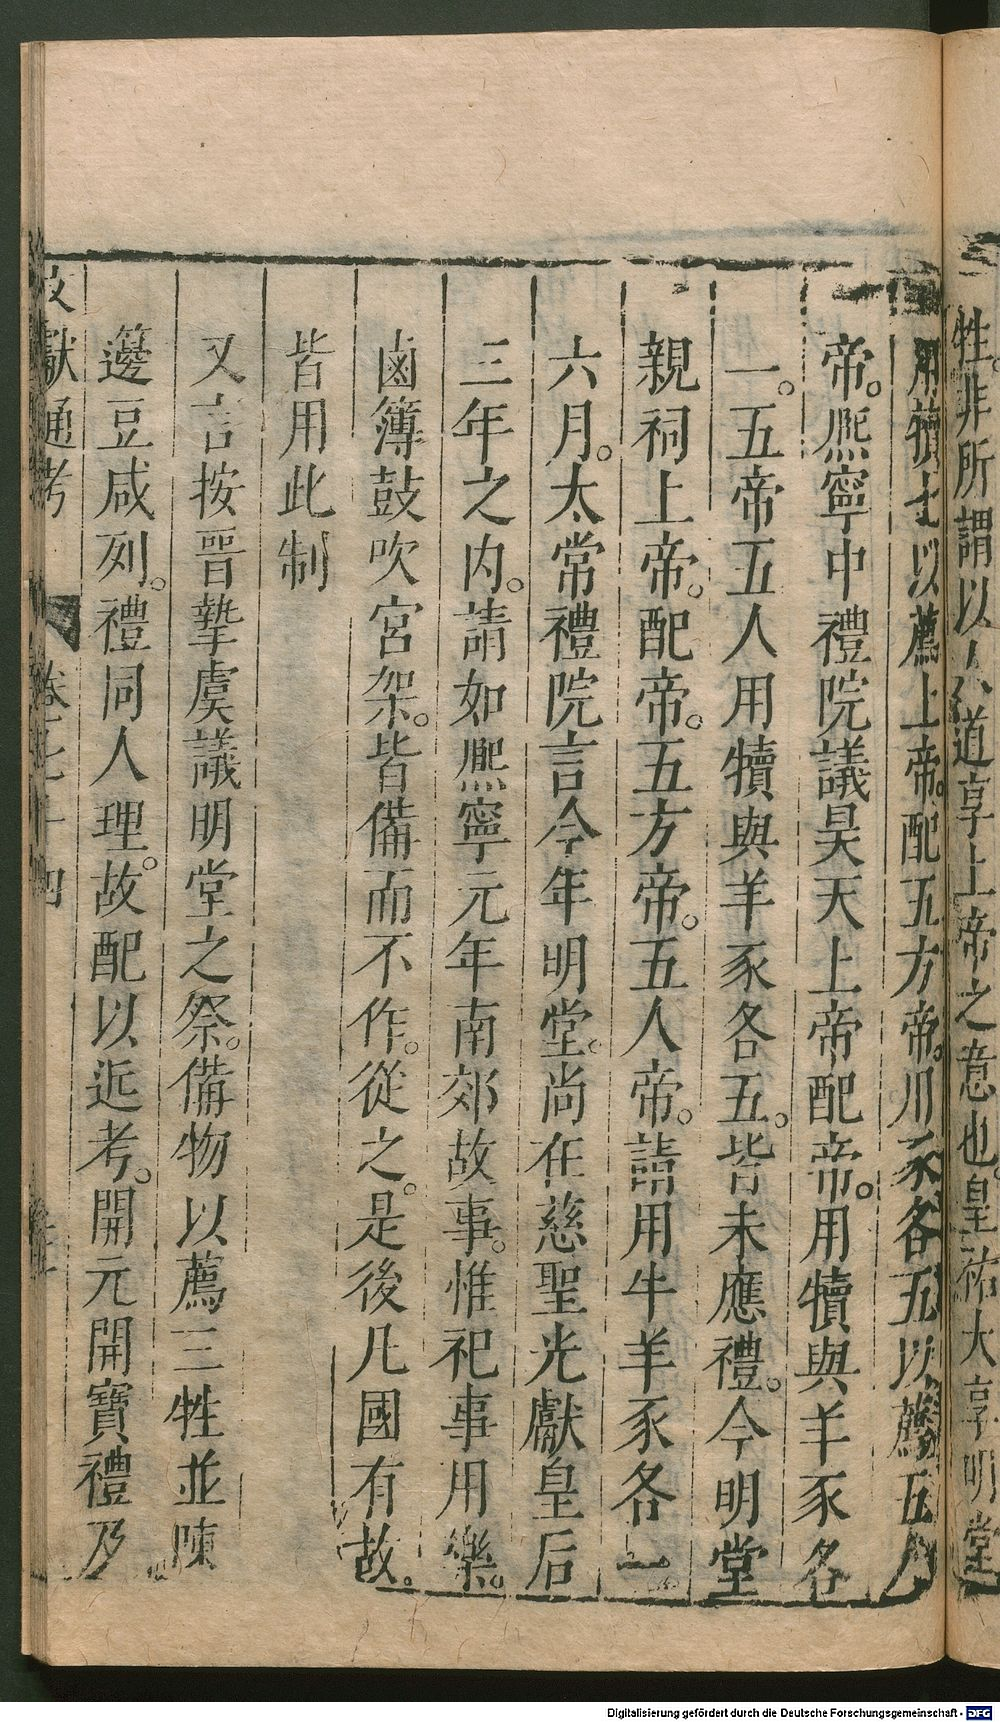 牲。非所謂以人道享上帝之意也。皇祐大享明堂
用犢七以薦上帝。配五方帝。用豕各五以薦五人
帝。熈寧中禮院議昊天上帝配帝。用犢與羊豕各
一。五帝五人用犢與羊豕各五。皆未應禮。今明堂
親祠上帝。配帝。五方帝。五人帝。請用牛羊豕各一
六月。太常禮院言今年明堂。尚在慈聖光獻皇后
三年之内。請如熈寧元年南郊故事。惟祀事用樂。
鹵簿鼓吹宮架。皆備而不作。從之。是後凡國有故。
皆用此制
又言按晉摯虞議明堂之祭。備物以薦三牲並陳
籩豆咸列。禮同人理。故配以近考。開元開寶禮乃
文獻通考 卷七十四
Digitalisierung gefördert durch die Deutsche Forschungsgemeinschaft - DFG